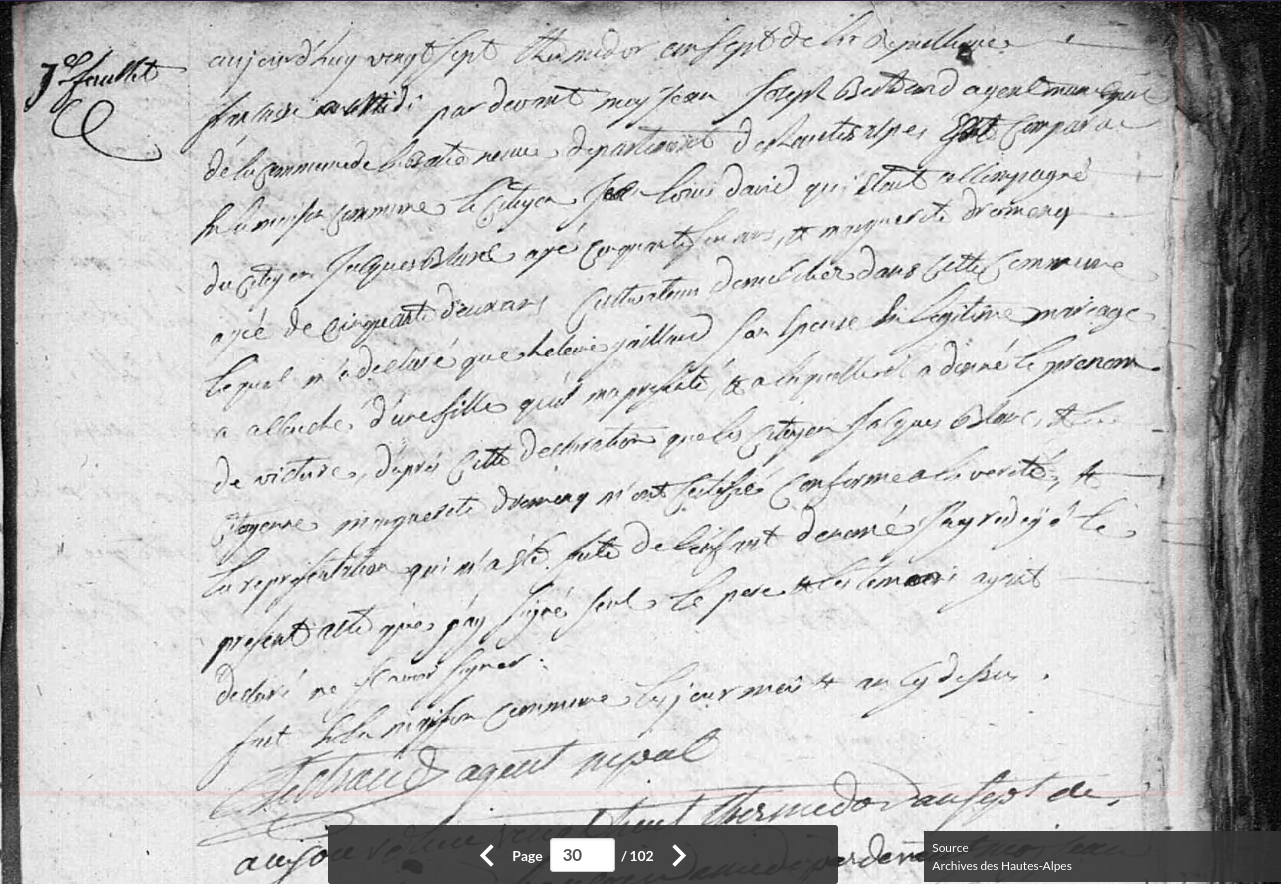 aujourd'huy vingt sept thermidor an sept de la Republique
francaise par devant moy Jean Joseph Bertrand agent municipal
de la commune de departement des hautes alpes Est Comparu
à la maison commune le Citoyen Louis david qui étant accompagné
du Citoyen Jacques Blanc agé cinquante ans, & marguerite
agée de cinquante deux ans Cultivateurs domicilies dans Cette Commune
lequel m'a declaré que helene gaillard son epouse En legitime mariage
a accouché d'une fille qu'il m'a presenté, & a laquelle il a donné le prenom
de victoire, d'après Cette declaration que les Citoyen Jacques Blanc, & la
Citoyenne marguerite m'ont Certifié Conforme a la verité, &
la representation qui m'a été faite de l'enfant denomé J'ay redigé le
present acte que j'ay signé seul le pere & les temoins ayant
declaré ne scavoir signer.
fait à la maison commune les jour mois & an cy dessus.
Bertrand agent mpal
aujourd'huy vingt huit thermidor an sept de
par devant
Page 30 / 102
Source
Archives des Hautes-Alpes